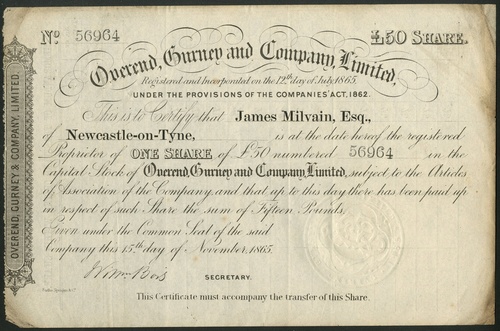 No. 56964
£50 SHARE.
Overend, Gurney and Company, Limited,
Registered and Incorporated on the 12th day of July 1865,
UNDER THE PROVISIONS OF THE COMPANIES' ACT, 1862.
This is to Certify that James Milvain, Esq.,
of Newcastle-on-Tyne, is at the date hereof the registered
Proprietor of ONE SHARE of £50 numbered 56964 in the
Capital Stock of Overend Gurney and Company, Limited, subject to the Articles
of Association of the Company, and that up to this day there has been paid up
in respect of such Share the sum of Fifteen Pounds,
Given under the Common Seal of the said
Company this 15th day of November, 1865.
SECRETARY.
This Certificate must accompany the transfer of this Share.
OVEREND, GURNEY & COMPANY, LIMITED.